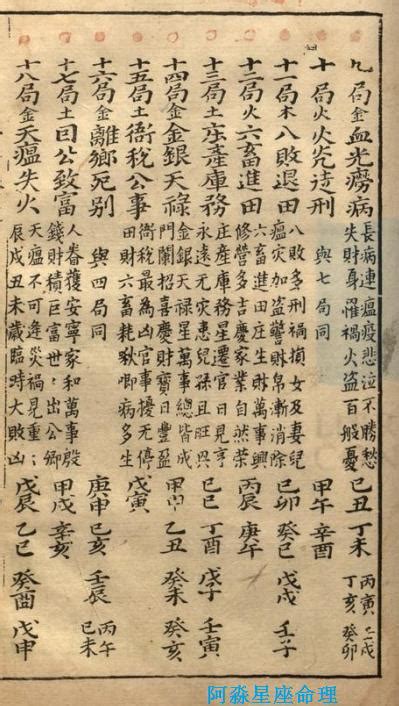 九局金血光癆病
長病連瘟疫悲泣不勝愁
失財身罹禍火盜百般憂
己丑 丁未 丙寅 戌
丁亥 癸卯
十局火火光徒刑 與七局同 甲午 辛酉
十一局木八敗退田
八敗多刑禍損女及妻兒
瘟灾加盜警財帛漸消除
己卯 癸巳 戊戌 壬子
十二局火六畜進田
六畜進田庄生財萬事興
修營多吉慶家業自然荣
丙辰 庚午
十三局土庄產庫務
庄產庫務星遷官日見亨
永遠无灾患兒孫且旺興
己巳 丁酉 戊子 壬寅
十四局金金銀天祿
金銀天祿星萬事總皆成
門闌招喜慶財寶日豐盈
甲申 乙丑 癸未 癸亥
十五局土衙稅公事
衙稅最為凶官事擾无停
田財六畜耗啾唧病多生
戊寅
十六局金離鄉死别 與四局同 庚申 己亥 壬辰 丙午
己未
十七局土曰公致富
人眷獲安寧家和萬事殷
錢財積巨富世〻出公卿
甲戌 辛亥
十八局金天瘟失火
天瘟不可逢災禍見重〻
辰戌丑未歲臨時大敗凶
戊辰 乙巳 癸酉 戊申
阿淼星座命理